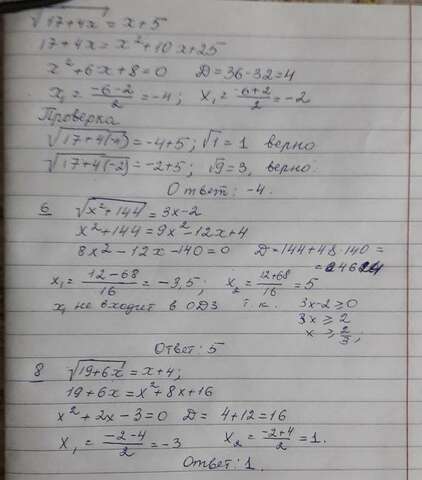 √17+4x = x+5
17+4x = x²+10x+25
x²+6x+8=0 D=36-32=4
x₁ = (-6-2)/2 = -4; x₁ = (-6+2)/2 = -2
Проверка
√17+4(-4) = -4+5; √1 = 1 верно
√17+4(-2) = -2+5; √9 = 3, верно.
Ответ: -4.
6 √x²+144 = 3x-2
x²+144 = 9x²-12x+4
8x²-12x-140=0 D=144+48·140=
=4624
x₁ = (12-68)/16 = -3,5; x₂ = (12+68)/16 = 5
x₁ не входит в ОДЗ т.к. 3x-2≥0
3x≥2
x≥2/3,
Ответ: 5
8 √19+6x = x+4;
19+6x = x²+8x+16
x²+2x-3=0 D=4+12=16
x₁ = (-2-4)/2 = -3 x₂ = (-2+4)/2 = 1.
Ответ: 1.